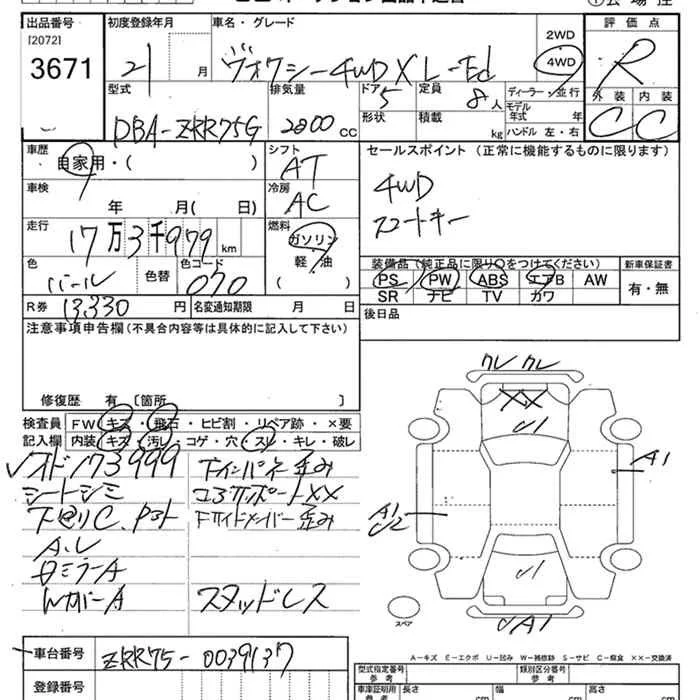 出品番号 初度登録年月 車名・グレード 2WD 評価点
[2072]
3671 21 月 ヴォクシー4WD X L-Ed 4WD R
型式 排気量 ドア 5 定員 8人 ディーラー・並行 外装 内装
DBA-ZRR75G 2000 cc 形状 積載 kg モデル年式 年 C C
ハンドル 左・右
車歴 シフト セールスポイント (正常に機能するものに限ります)
自家用・( ) AT 4WD
車検 冷房 スマートキー
年 月( 日) AC
走行 燃料
17万3千979 km ガソリン
軽・油
色 色替 色コード ( ) 装備品(純正品に限り○をつけてください) 新車保証書
パール 070 PS PW ABS エアB AW 有・無
SR ナビ TV カワ
R券 13,330 円 名変通知期限 月 日 後日品
注意事項申告欄(不具合内容等は具体的に記入して下さい)
修復歴 有 [箇所 ]
検査員 FW キズ・飛石・ヒビ割・リペア跡・×要
記入欄 内装・キズ・汚レ・コゲ・穴・スレ・キレ・破レ
オド173999 下インパネ歪み
シートシミ コアサポートXX
下廻りC、Pコト Fサイドメンバー歪み
A.U
ミラーA
WカバーA スタッドレス
クレ クレ
XX
U1
A1
A1
U2
U1
UA1
スペア
車台番号 ZRR75-0039137
登録番号
A-キズ E-エクボ U-凹み W-補修跡 S-サビ C-腐食 ××-交換済
型式指定番号 参考 類別区分番号 参考
車庫証明用 参考 長さ cm 幅 cm 高さ cm